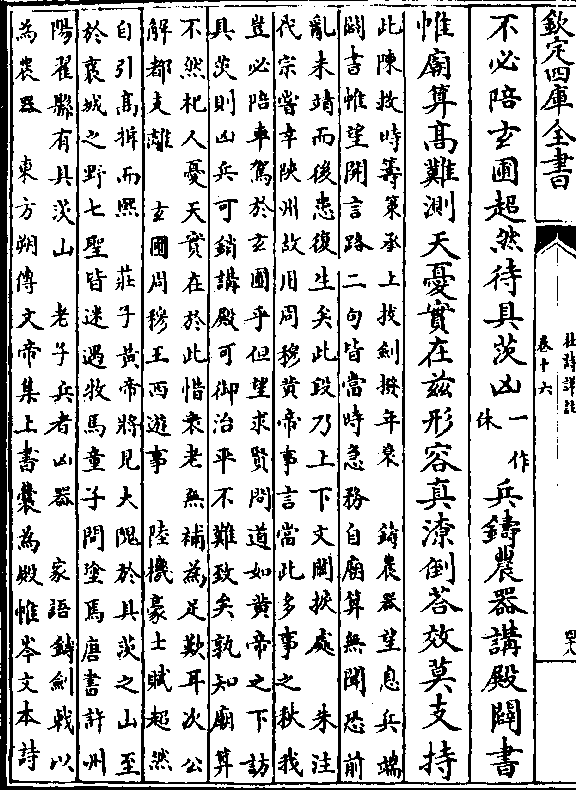 欽定四庫全書
杜詩詳註
卷十六
不必陪玄圃超然待具茨凶一作休兵鑄農器講殿闢書
帷廟算高難測天憂實在兹形容真潦倒荅效莫支持
此陳救時籌策承上拔劍撥年衰鑄農器望息兵端
闢書惟望開言路二句皆當時急務自廟算無聞恐前
亂未靖而後患復生矣此段乃上下文關捩處朱注
代宗嘗幸陜州故用周穆黄帝事言當此多事之秋我
豈必陪車駕於玄圃乎但望求賢問道如黄帝之下訪
具茨則凶兵可銷講殿可御治平不難致矣孰知廟算
不然杞人憂天實在於此惜衰老無補為足歎耳次公
解都支離玄圃周穆王西遊事陸機豪士賦超然
自引高揖而熙莊子黄帝將見大隗於具茨之山至
於襄城之野七聖皆迷遇牧馬童子問塗馬唐書許州
陽翟縣有具茨山老子兵者凶器家語鑄劍戟以
為農器東方朔傳文帝集上書囊為殿惟岑文本詩